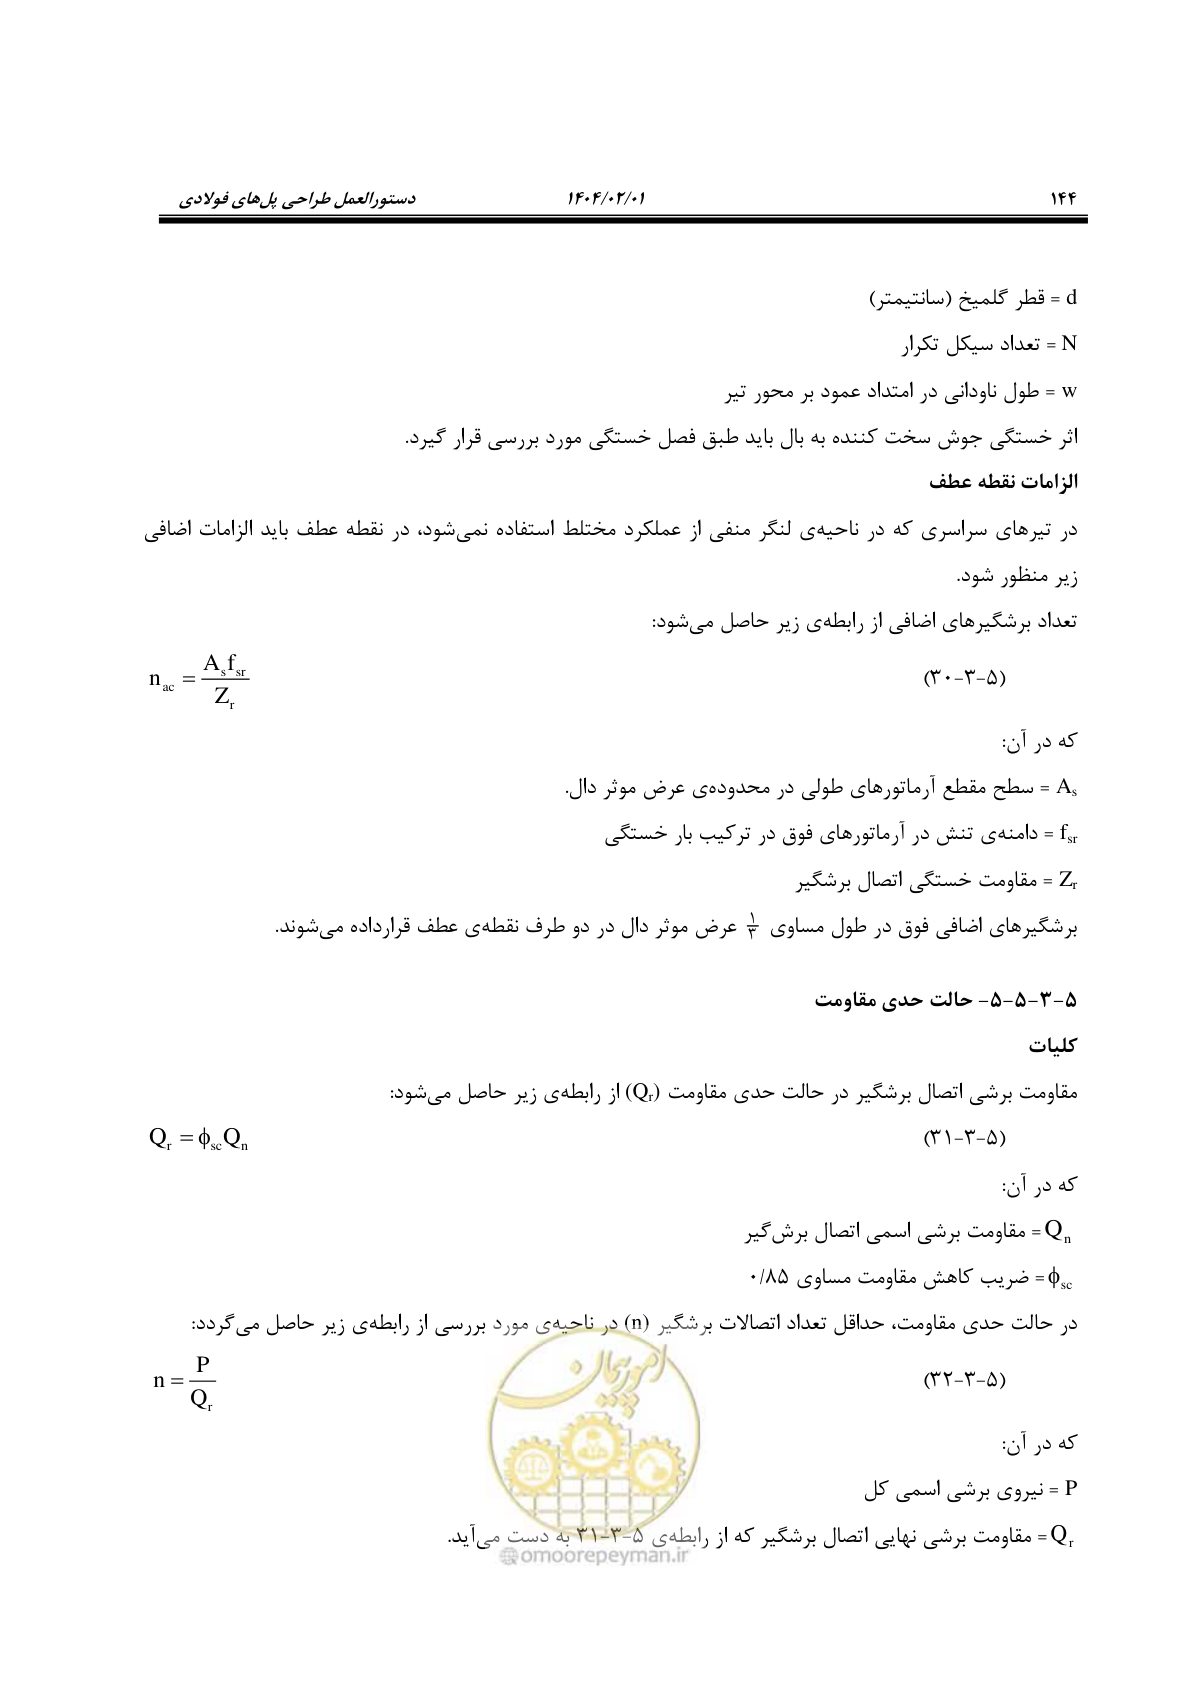 ۱۴۴ ۱۴۰۴/۰۲/۰۱ دستورالعمل طراحی پل‌های فولادی
d = قطر گلمیخ (سانتیمتر)
N = تعداد سیکل تکرار
w = طول ناودانی در امتداد عمود بر محور تیر
اثر خستگی جوش سخت کننده به بال باید طبق فصل خستگی مورد بررسی قرار گیرد.
الزامات نقطه عطف
در تیرهای سراسری که در ناحیه‌ی لنگر منفی از عملکرد مختلط استفاده نمی‌شود، در نقطه عطف باید الزامات اضافی
زیر منظور شود.
تعداد برشگیرهای اضافی از رابطه‌ی زیر حاصل می‌شود:
(۵-۳-۳۰) n_ac = A_s f_sr / Z_r
که در آن:
A_s = سطح مقطع آرماتورهای طولی در محدوده‌ی عرض موثر دال.
f_sr = دامنه‌ی تنش در آرماتورهای فوق در ترکیب بار خستگی
Z_r = مقاومت خستگی اتصال برشگیر
برشگیرهای اضافی فوق در طول مساوی ۱/۳ عرض موثر دال در دو طرف نقطه‌ی عطف قرارداده می‌شوند.
۵-۳-۵-۵- حالت حدی مقاومت
کلیات
مقاومت برشی اتصال برشگیر در حالت حدی مقاومت (Q_r) از رابطه‌ی زیر حاصل می‌شود:
(۵-۳-۳۱) Q_r = ϕ_sc Q_n
که در آن:
Q_n = مقاومت برشی اسمی اتصال برش‌گیر
ϕ_sc = ضریب کاهش مقاومت مساوی ۰/۸۵
در حالت حدی مقاومت، حداقل تعداد اتصالات برشگیر (n) در ناحیه‌ی مورد بررسی از رابطه‌ی زیر حاصل می‌گردد:
(۵-۳-۳۲) n = P / Q_r
که در آن:
P = نیروی برشی اسمی کل
Q_r = مقاومت برشی نهایی اتصال برشگیر که از رابطه‌ی ۵-۳-۳۱ به دست می‌آید.
امور پیمان
@omoorepeyman.ir